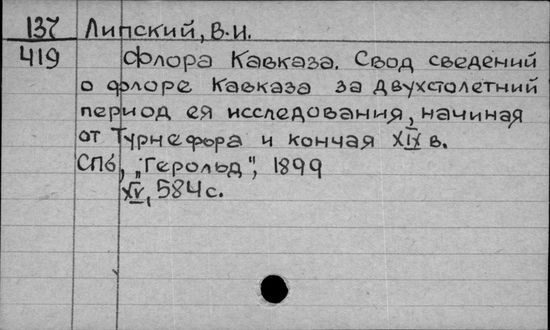 137 Липский, В.И.
419 Флора Кавказа. Свод сведений
о флоре Кавказа за двухстолетний
период ея исследования, начиная
от Турнефора и кончая XIX в.
СПб, "Герольд", 1899
XV, 584 с.